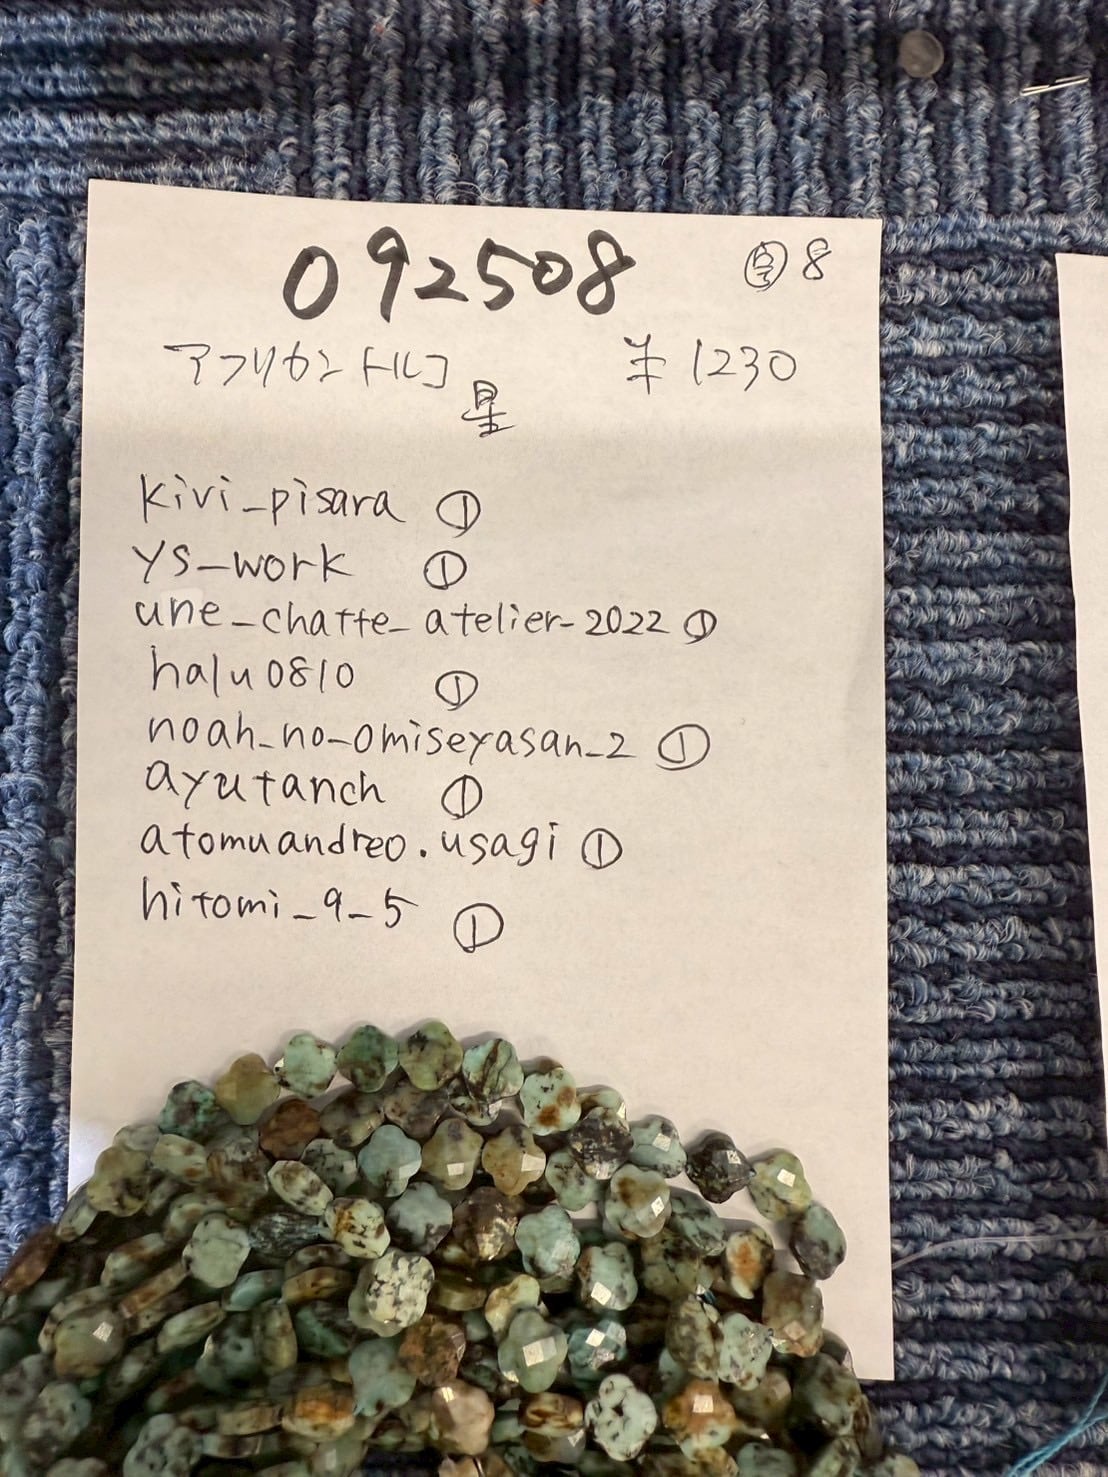 092508 8
アフリカントルコ ¥1230
星
kivi_pisara ①
ys_work ①
une_chatte_atelier_2022 ①
halu0810 ①
noah_no_omiseyasan_2 ①
ayutanch ①
atomuandreo.usagi ①
hitomi_9_5 ①